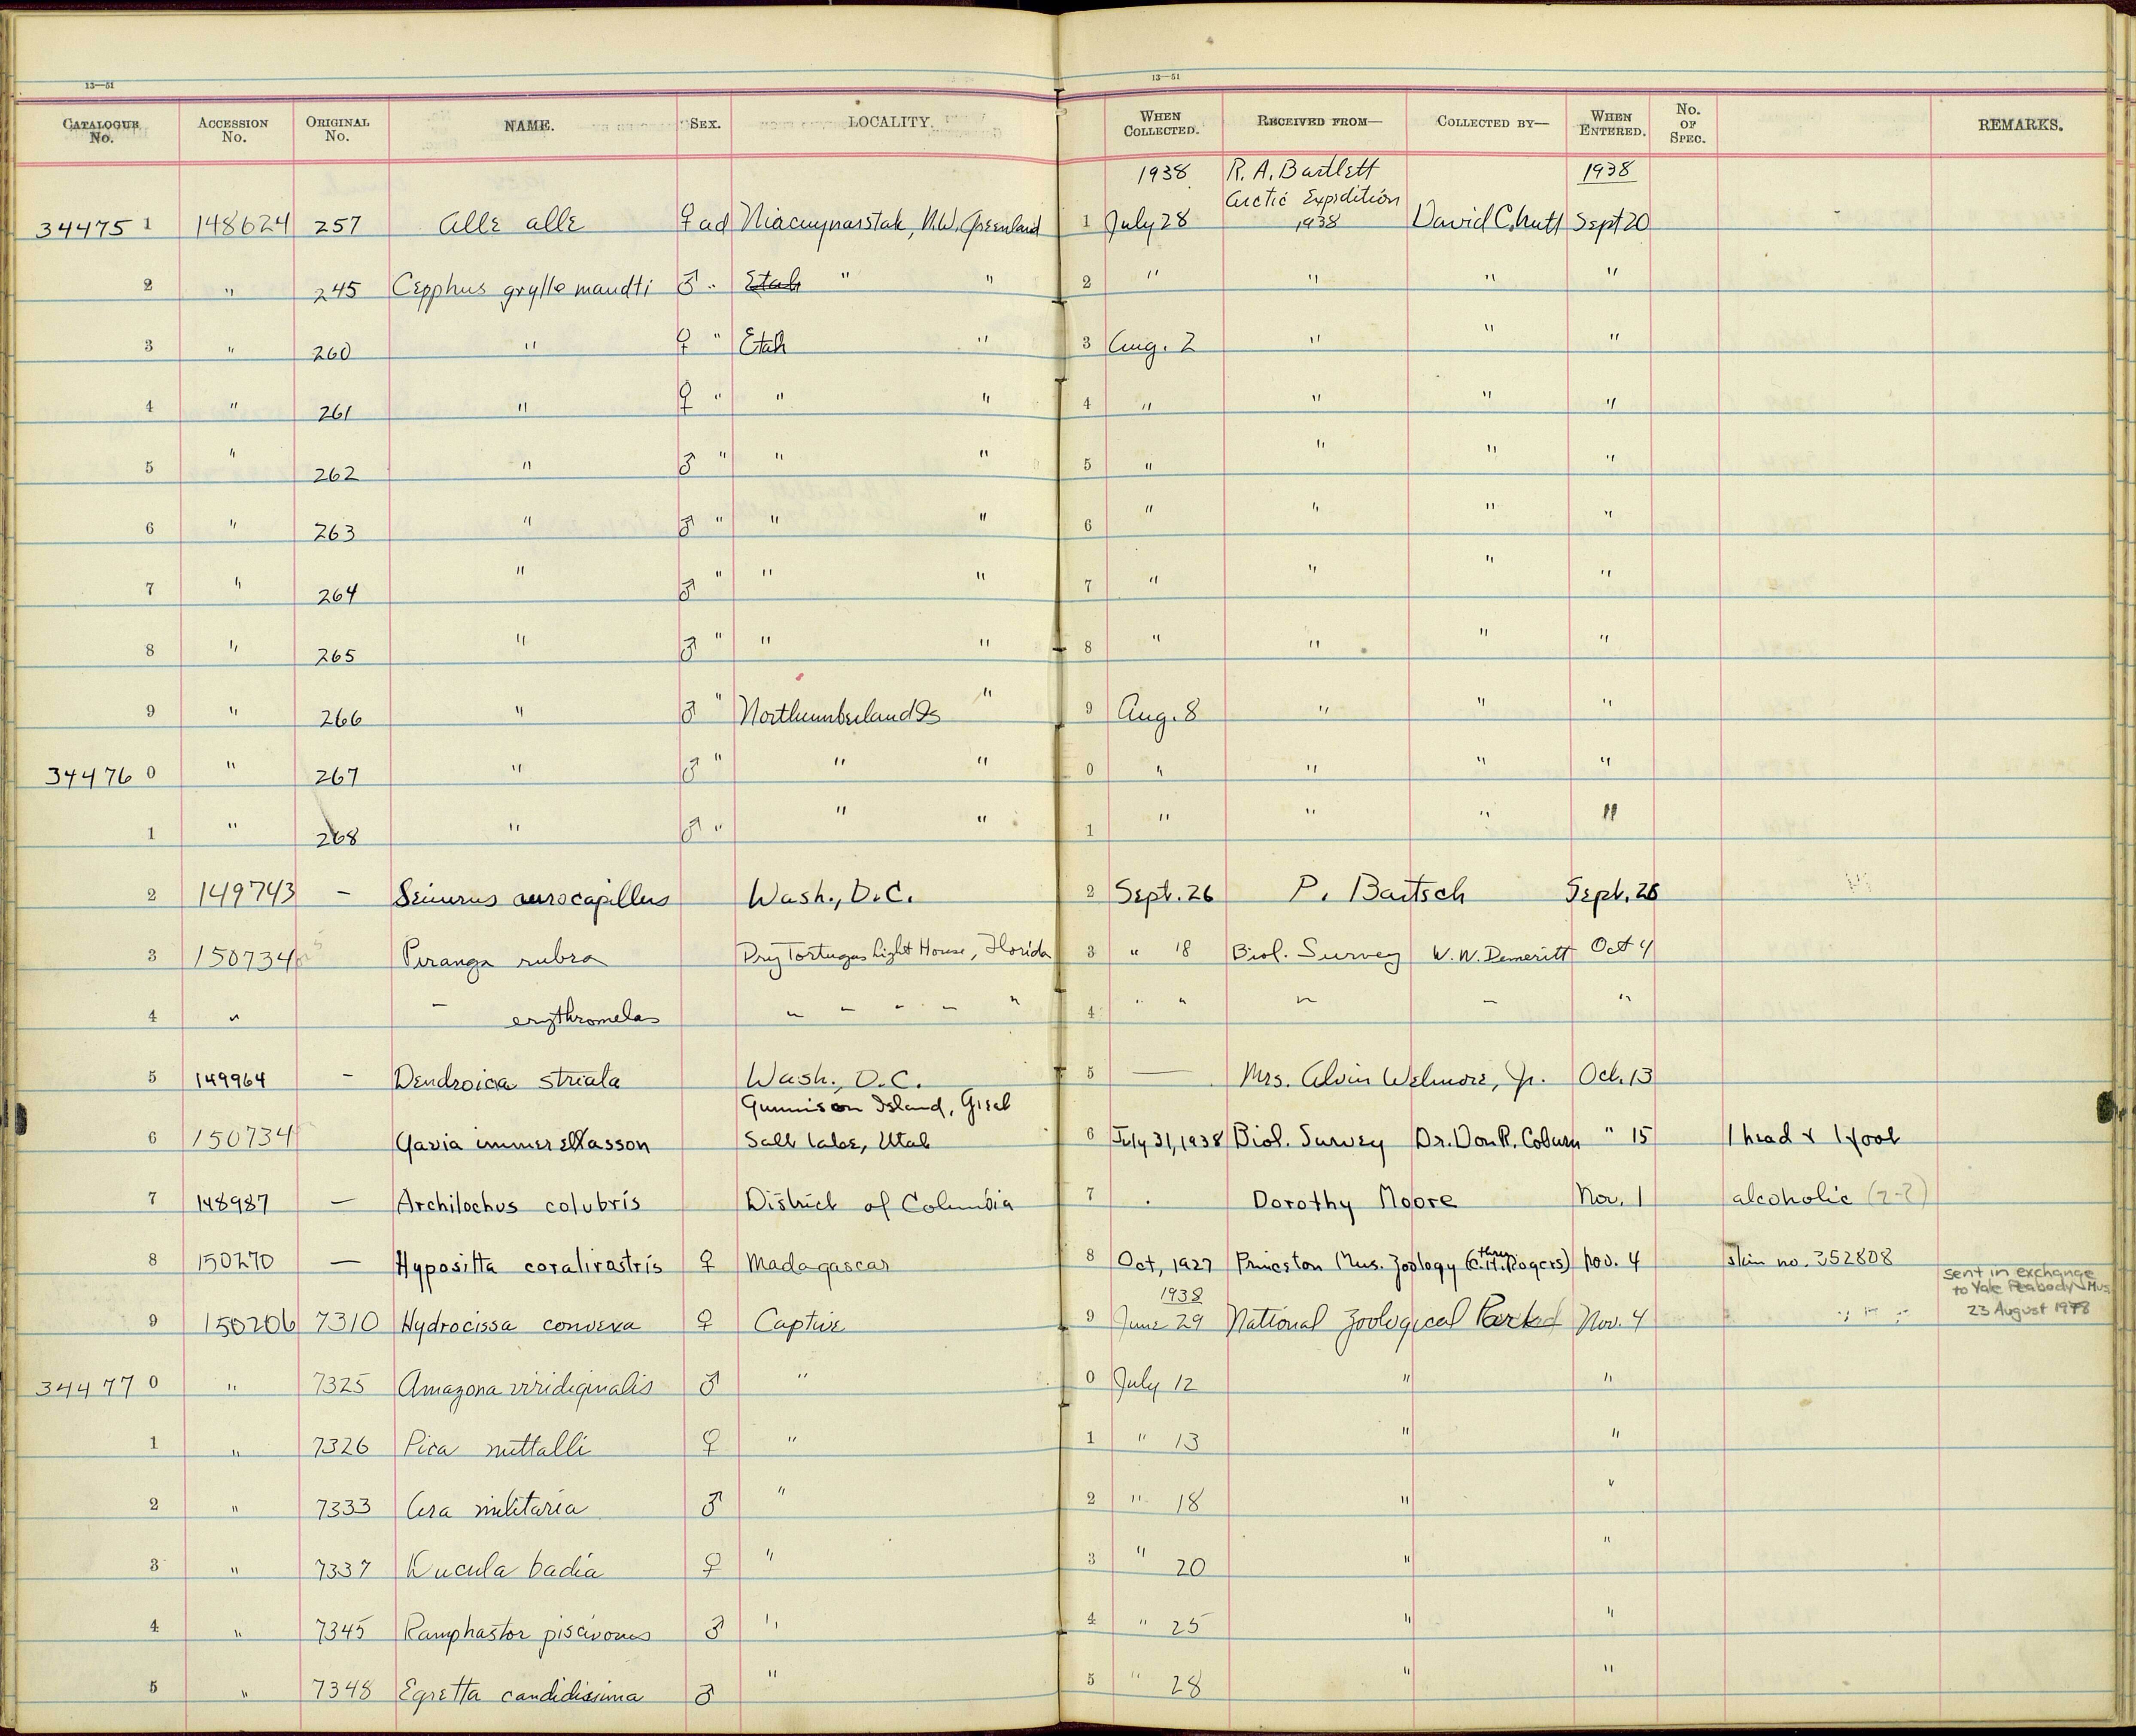 13—51
13—51
CATALOGUE No. ACCESSION No. ORIGINAL No. NAME. SEX. LOCALITY. WHEN COLLECTED. RECEIVED FROM— COLLECTED BY— WHEN ENTERED. No. OF SPEC. REMARKS.
1938 R. A. Bartlett 1938
Arctic Expedition
34475 1 148624 257 Alle alle ♀ ad N.W. Greenland 1 July 28 1938 David C. Nutt Sept 20
2 " 245 Cepphus grylle mandti ♂ " Etah " " 2 " " " "
3 " 260 " ♀ " Etah " 3 Aug. 2 " " "
4 " 261 " ♀ " " " 4 " " " "
5 " 262 " ♂ " " " 5 " " " "
6 " 263 " ♂ " " " 6 " " " "
7 " 264 " ♂ " " " 7 " " " "
8 " 265 " ♂ " " " 8 " " " "
9 " 266 " ♂ " Northumberland Is " 9 Aug. 8 " " "
34476 0 " 267 " ♂ " " " 0 " " " "
1 " 268 " ♂ " " " 1 " " " "
2 149743 — Seiurus aurocapillus Wash., D.C. 2 Sept. 26 P. Bartsch Sept. 26
3 150734 Piranga rubra Dry Tortugas Light House, Florida 3 " 18 Biol. Survey W. W. Demeritt Oct 4
4 " " erythromelas " " " " " 4 " " " " "
5 149964 — Dendroica striata Wash., D.C. 5 — Mrs. Alvin Wetmore, Jr. Oct. 13
Gunnison Island, Great
6 150734 Gavia immer elasson Salt Lake, Utah 6 July 31, 1938 Biol. Survey Dr. Don R. Coburn " 15 1 head & 1 foot
7 148987 — Archilochus colubris District of Columbia 7 . Dorothy Moore Nov. 1 alcoholic (2-?)
8 150270 — Hypositta coralirostris ♀ Madagascar 8 Oct, 1927 Princeton Mus. Zoology (thru C. H. Rogers) Nov. 4 Skin no. 352808
sent in exchange
to Yale Peabody Mus
1938
9 150206 7310 Hydrocissa convexa ♀ Captive 9 June 29 National Zoological Park Nov. 4 " " " 23 August 1978
34477 0 " 7325 Amazona viridiginalis ♂ " 0 July 12 " "
1 " 7326 Pica nuttalli ♀ " 1 " 13 " "
2 " 7333 Ara militaria ♂ " 2 " 18 " "
3 " 7337 Ducula badia ♀ " 3 " 20 " "
4 " 7345 Ramphastor piscivorus ♂ " 4 " 25 " "
5 " 7348 Egretta candidissima ♂ " 5 " 28 " "